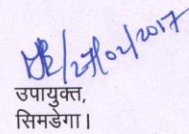 27/02/2017
उपायुक्त,
सिमडेगा।